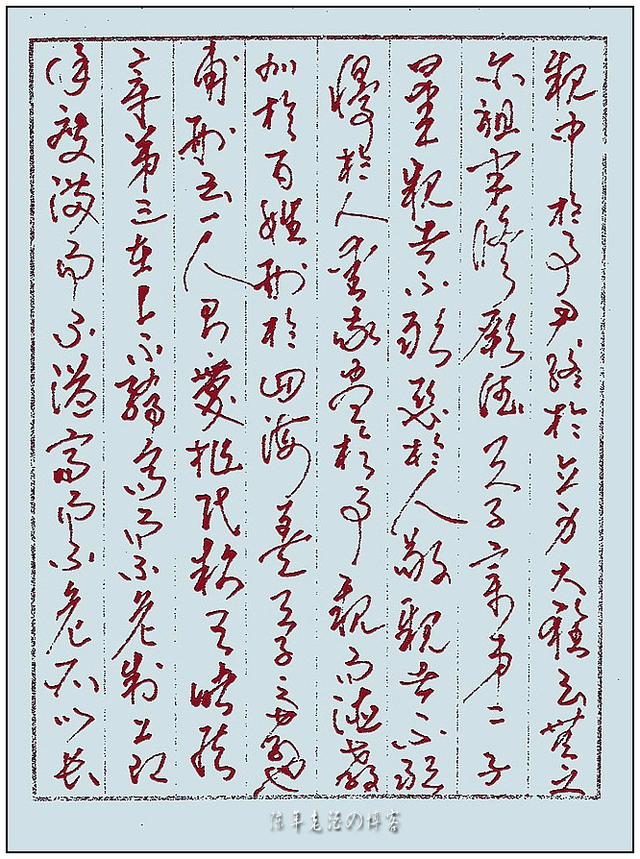 親中於事君終於立身大雅云無念
尔祖聿脩厥德天子章第二子
曰愛親者不敢惡於人敬親者不敢
慢於人愛敬盡於事親而德教
加於百姓刑於四海蓋天子之孝也
甫刑云一人有慶兆民賴之諸侯
章第三在上不驕高而不危制節
謹度滿而不溢高而不危所以長
の博客